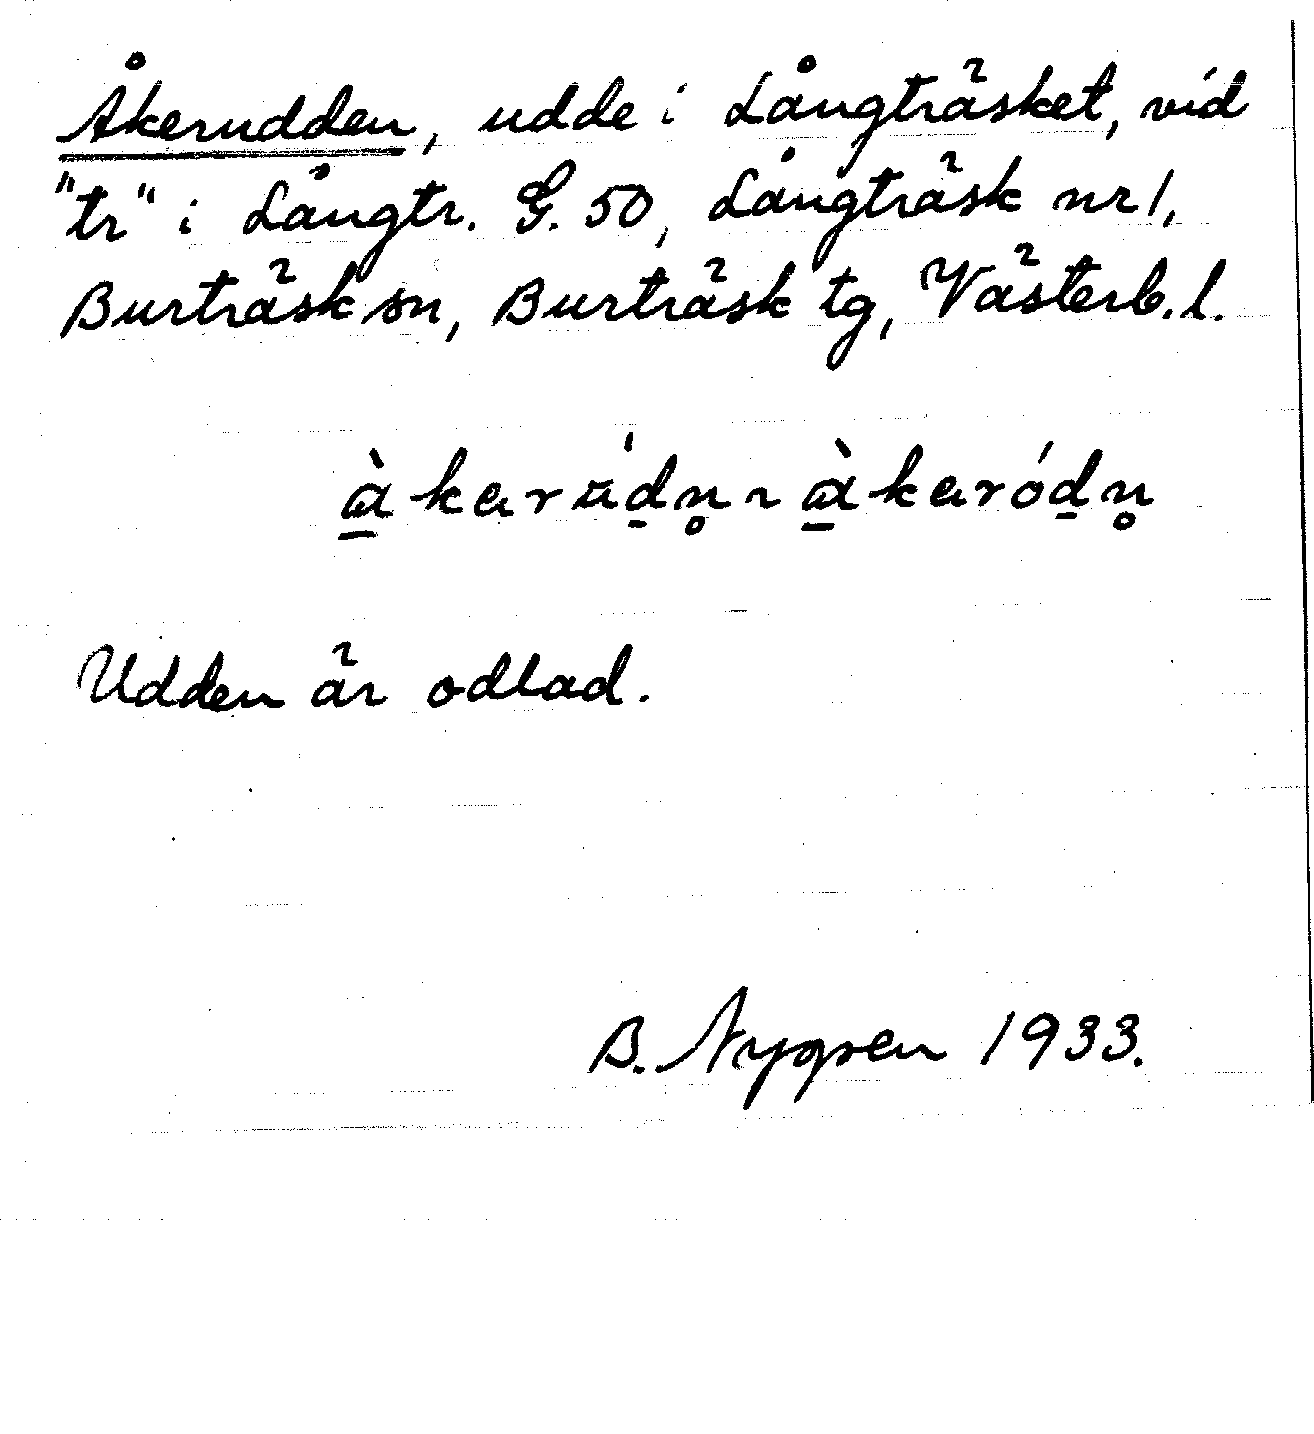 Åkerudden, udde i Långträsket, vid
"tr" i Långtr. G. 50, Långträsk nr 1,
Burträsk sn, Burträsk tg, Västerb. l.
Udden är odlad.
B. 1933.